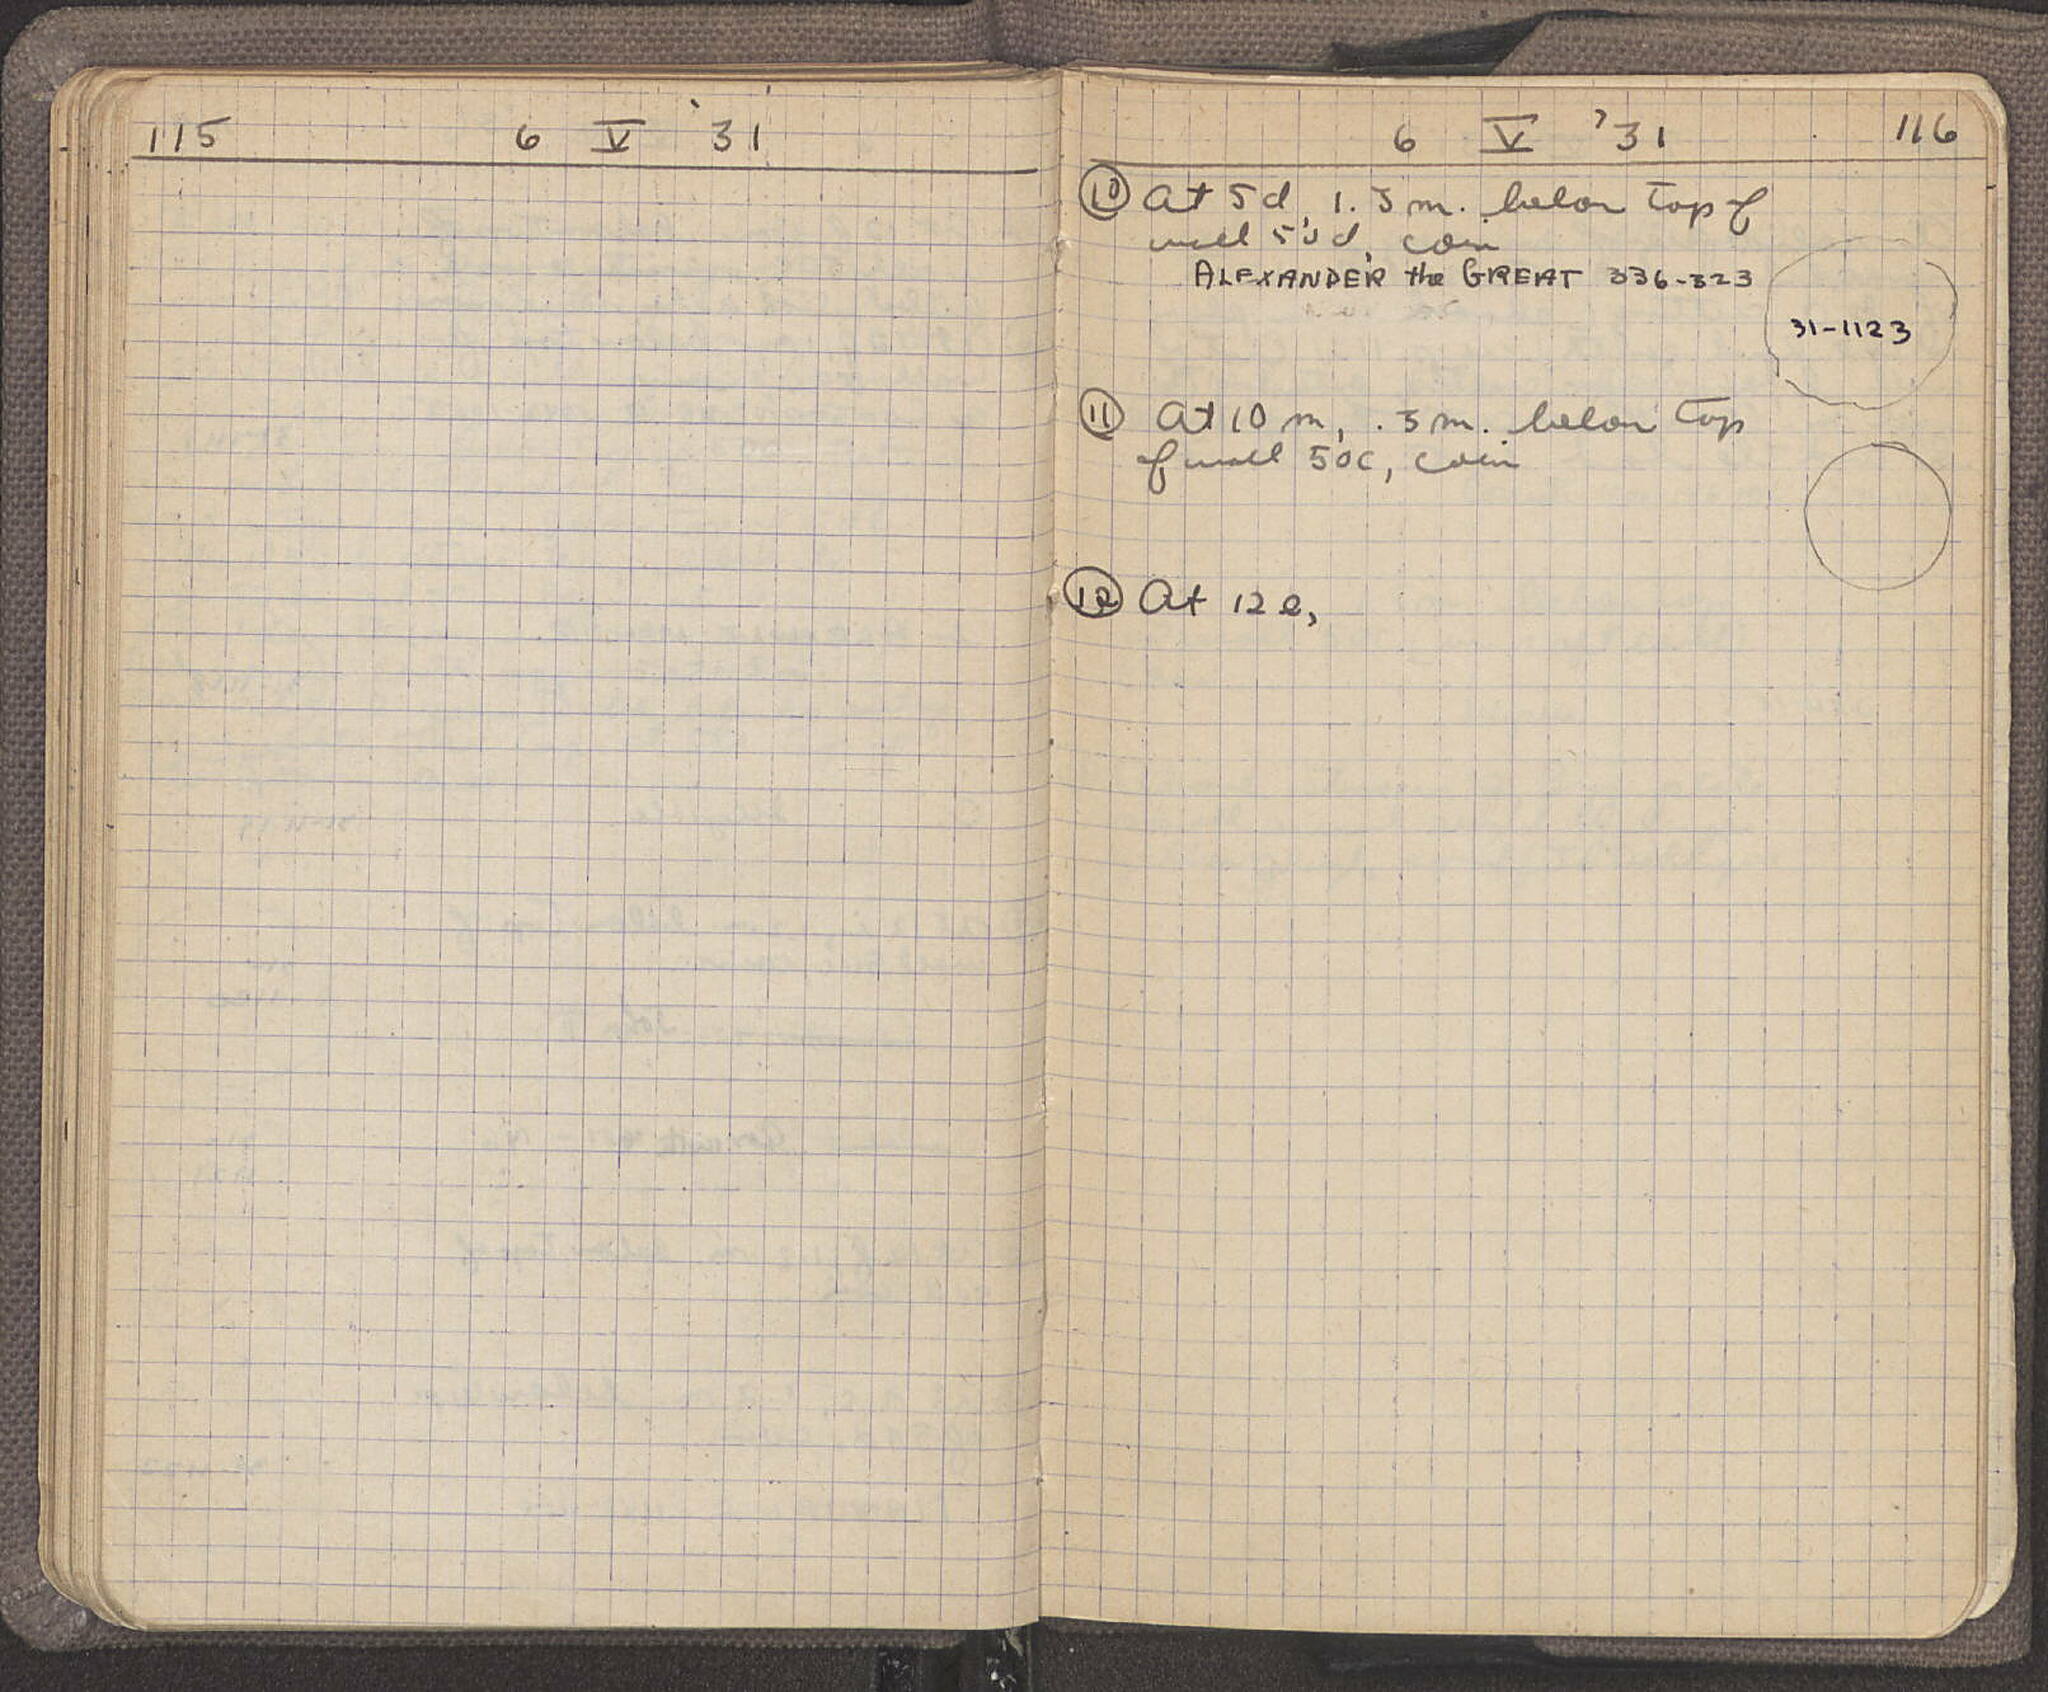 115 6 V '31
6 V '31 116
10 At 5d, 1.5 m. below top of
wall 50d, coin
ALEXANDER the GREAT 336-323
31-1123
11 At 10 m, .5 m. below top
of wall 50c, coin
12 At 12 e,